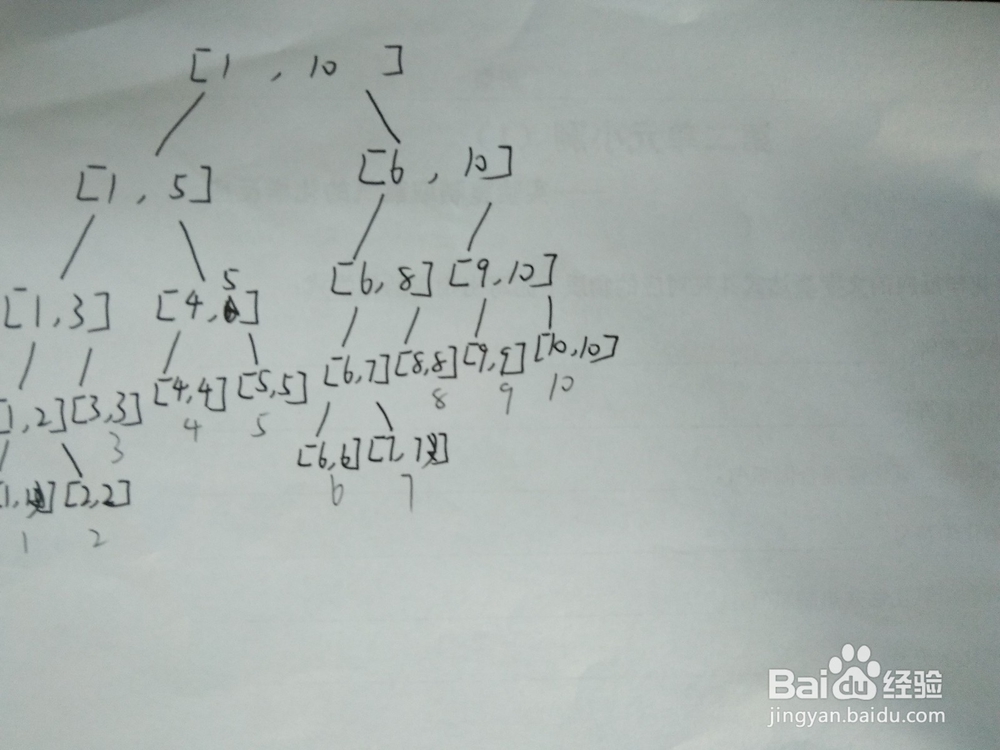 [1 , 10 ]
[1 , 5] [6 , 10]
[1,3] [4,5] [6,8] [9,10]
[1,2] [3,3] [4,4] [5,5] [6,7] [8,8] [9,9] [10,10]
3 4 5 8 9 10
[1,1] [2,2] [6,6] [7,7]
1 2 6 7
Baidu 经验
jingyan.baidu.com